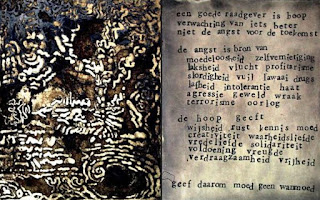 een goede raadgever is hoop
verwachting van iets beter
niet de angst voor de toekomst
de angst is bron van
moedeloosheid zelfvernietiging
laksheid vlucht profitisme
slordigheid vuil lawaai drugs
lafheid intolerantie haat
agressie geweld wraak
terrorisme oorlog
de hoop geeft
wijsheid rust kennis moed
creativiteit waarheidsliefde
vredeliefde solidariteit
voldoening vreugde
verdraagzaamheid vrijheid
geef daarom moed geen wanmoed